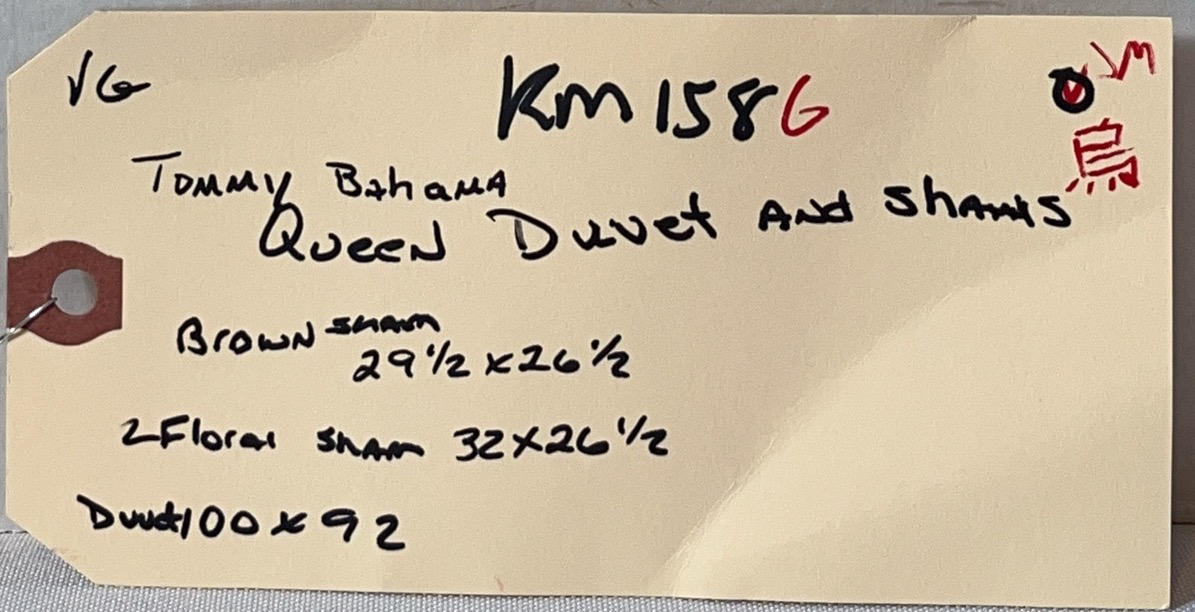 VG
KM158G
VM
Tommy Bahama
Queen Duvet And Shams
Brown sham
29 1/2 x 26 1/2
2 Floral sham 32 x 26 1/2
Duvet 100 x 92